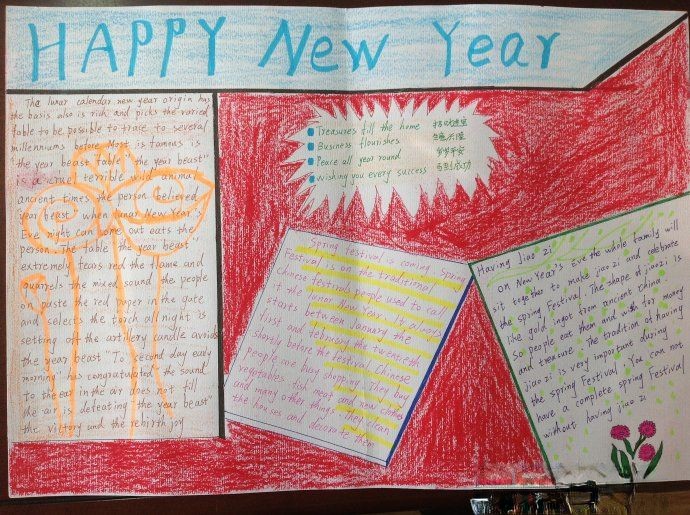 HAPPY New Year
The lunar calendar new year origin has
the basis also is rich and picks the varied
fable to be possible to trace to several
millenniums before. Most is famous is
the year beast fable "the year beast"
is a cruel terrible wild animal,
ancient times the person believed
year beast "when lunar New Year's
Eve night can come out eats the
person. The table "the year beast"
extremely fears red the flame and
quarrels the mixed sound the people
on paste the red paper in the gate
and selects the torch all night is
setting off the artillery candle avoids
the year beast "To "second day early
morning" has congratulated the sound
to the ear in the air does not fill
the air is defeating the year beast"
the victory and the rebirth joy
Treasures fill the home 招财进宝
Business flourishes 生意兴隆
Peace all year round 岁岁平安
wishing you every success 马到成功
Spring festival is coming Spring
Festival is on the traditional
Chinese festivals people used to call
it the lunar New Year. It always
starts between January the
first and february the twentieth
shortly before the festival, Chinese
people are busy shopping. They buy
vegetables fish meat and new clothes
and many other things. They clean
the houses and decorate them
Having Jiao zi
on New Year's Eve the whole family will
sit together to make jiao zi and celebrate
the spring Festival. The shape of jiaozi is
like gold ingot from ancient China.
So people eat them and wish for money
and treasure. The tradition of having
Jiao zi is very important during
the Spring Festival. You can not
have a complete spring Festival
without having jiao zi